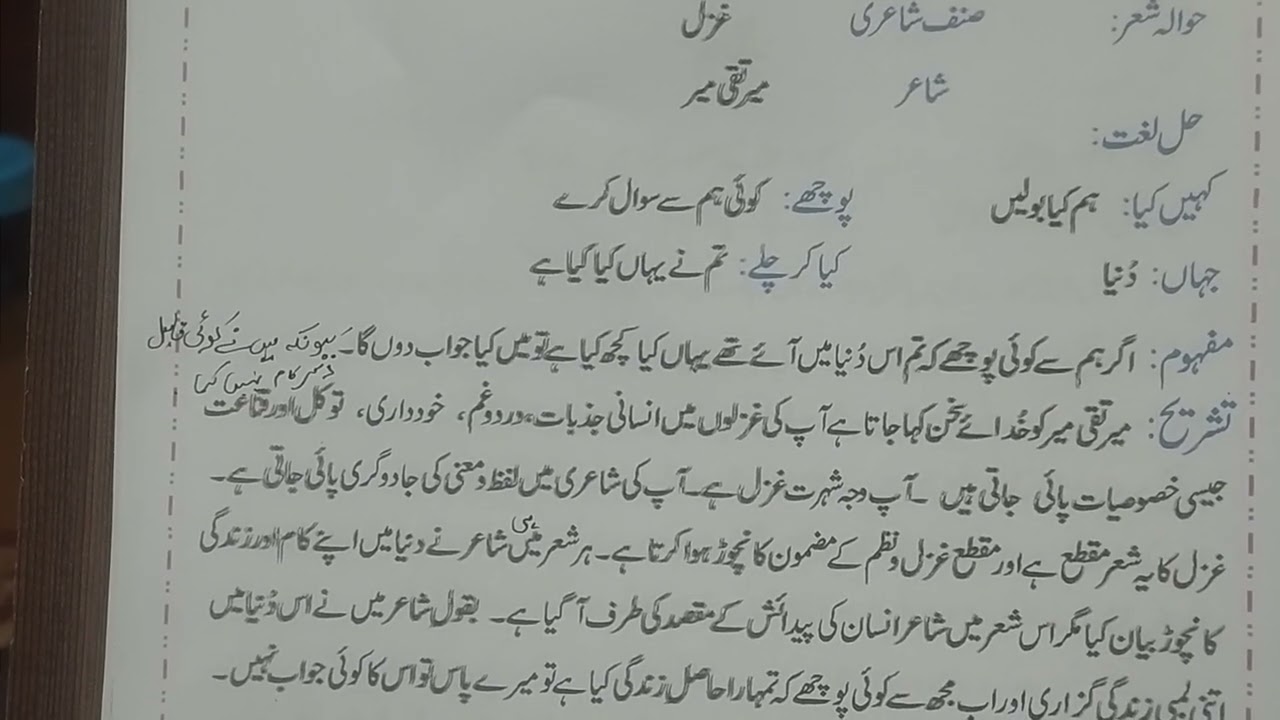 حوالہ شعر: صنف شاعری غزل
شاعر میر تقی میر
حل لغت:
کہیں کیا: ہم کیا بولیں پوچھے: کوئی ہم سے سوال کرے
جہاں: دُنیا کیا کر چلے: تم نے یہاں کیا کیا ہے
مفہوم: اگر ہم سے کوئی پوچھے کہ تم اس دُنیا میں آئے تھے یہاں کیا کچھ کیا ہے تو میں کیا جواب دوں گا۔ کیونکہ میں نے کوئی قابل
ذکر کام نہیں کیا
تشریح: میر تقی میر کو خُدائے سخن کہا جاتا ہے آپ کی غزلوں میں انسانی جذبات، درد و غم، خودداری، توکل اور قناعت
جیسی خصوصیات پائی جاتی ہیں ۔ آپ وجہ شہرت غزل ہے۔ آپ کی شاعری میں لفظ و معنی کی جادوگری پائی جاتی ہے۔
غزل کا یہ شعر مقطع ہے اور مقطع غزل و نظم کے مضمون کا نچوڑ ہوا کرتا ہے۔ ہر شعر میں ہی شاعر نے دنیا میں اپنے کام اور زندگی
کا نچوڑ بیان کیا مگر اس شعر میں شاعر انسان کی پیدائش کے مقصد کی طرف آ گیا ہے۔ بقول شاعر میں نے اس دُنیا میں
اتنی لمبی زندگی گزاری اور اب مجھ سے کوئی پوچھے کہ تمہارا حاصل زندگی کیا ہے تو میرے پاس تو اس کا کوئی جواب نہیں۔